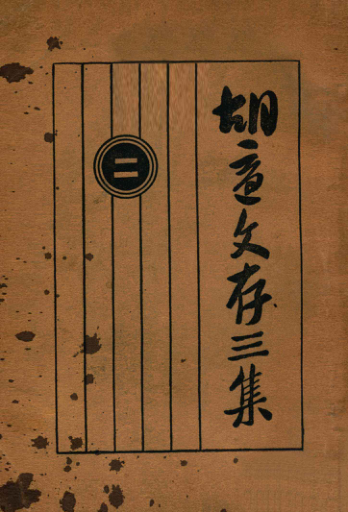 胡适文存三集
二